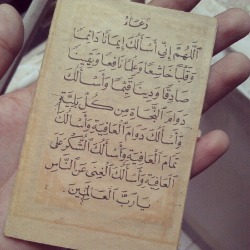 دُعَاء
اَللّٰهُمَّ إِنِّي أَسْأَلُكَ إِيمَانًا دَائِمًا
وَقَلْبًا خَاشِعًا وَعِلْمًا نَافِعًا وَيَقِينًا
صَادِقًا وَدِينًا قَيِّمًا وَأَسْأَلُكَ
دَوَامَ النَّجَاةِ مِنْ كُلِّ بَلِيَّةٍ
وَأَسْأَلُكَ دَوَامَ الْعَافِيَةِ وَأَسْأَلُكَ
تَمَامَ الْعَافِيَةِ وَأَسْأَلُكَ الشُّكْرَ عَلَى
الْعَافِيَةِ وَأَسْأَلُكَ الْغِنَى عَنِ النَّاسِ
يَارَبَّ الْعَالَمِينَ